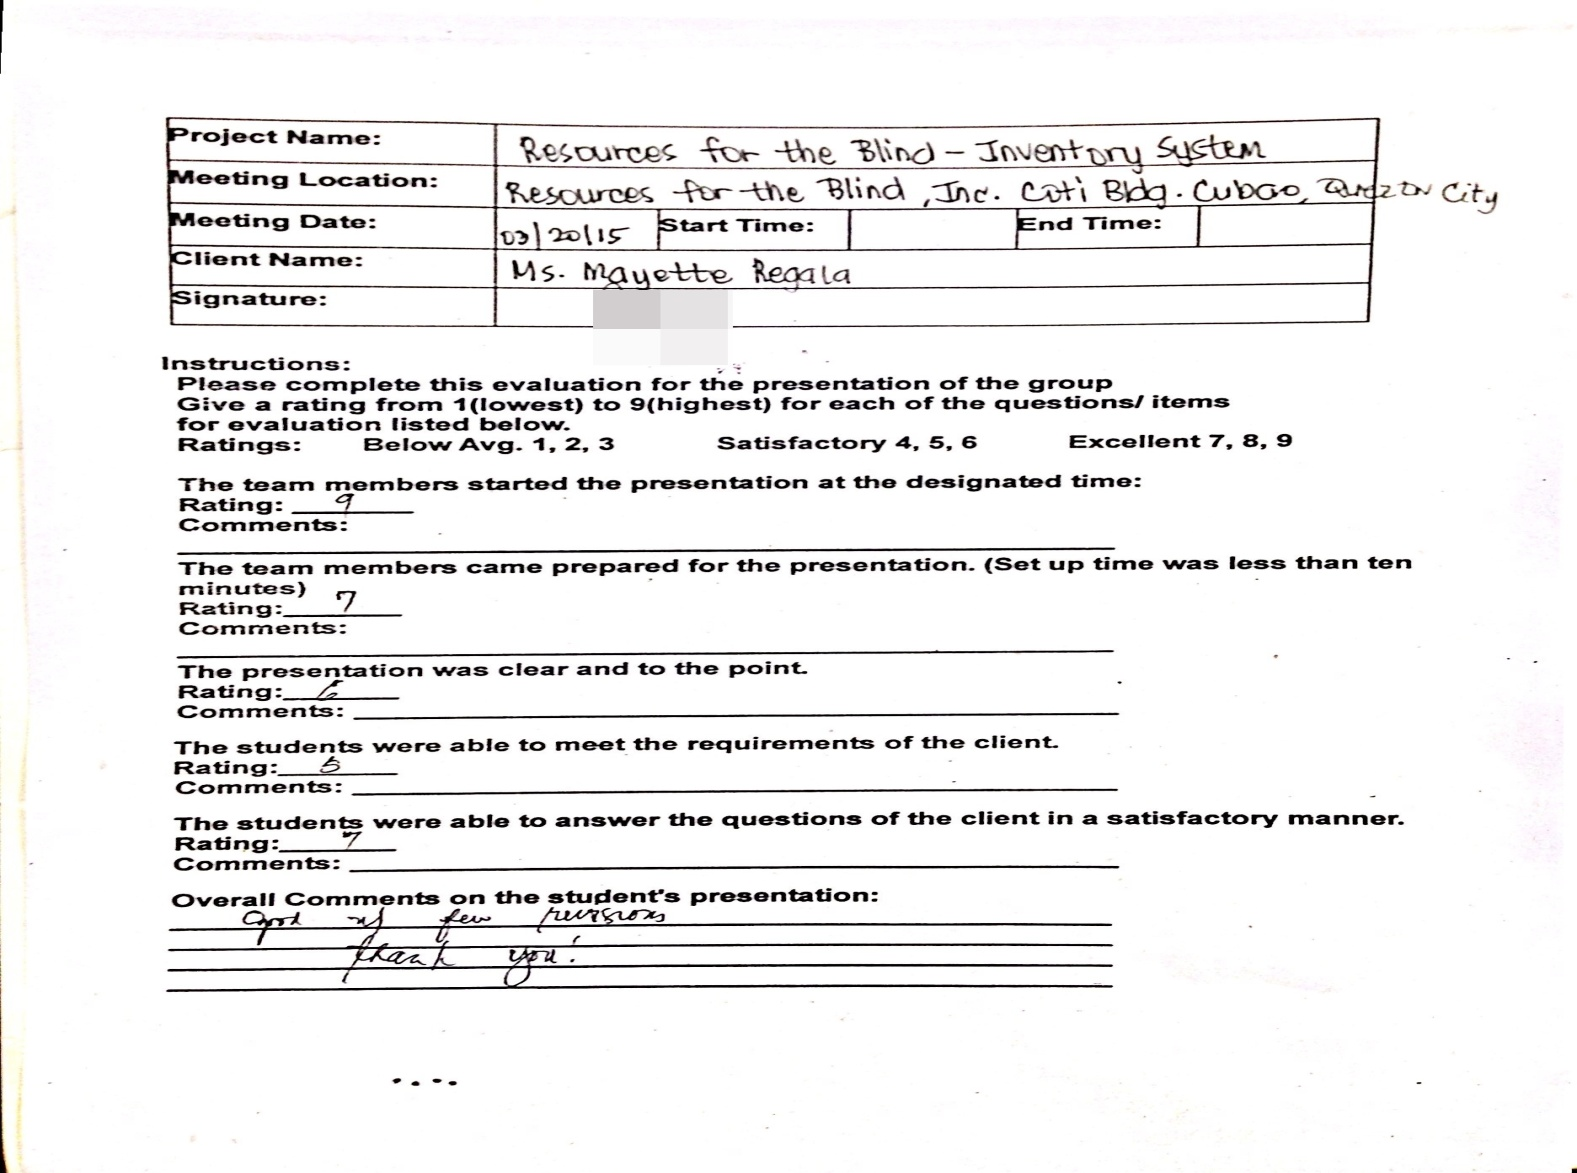 Project Name: Resources for the Blind - Inventory System
Meeting Location: Resources for the Blind, Inc. Coti Bldg. Cubao, Quezon City
Meeting Date: 03/20/15 Start Time: End Time:
Client Name: Ms. Mayette Regala
Signature:
Instructions:
Please complete this evaluation for the presentation of the group
Give a rating from 1(lowest) to 9(highest) for each of the questions/ items
for evaluation listed below.
Ratings: Below Avg. 1, 2, 3 Satisfactory 4, 5, 6 Excellent 7, 8, 9
The team members started the presentation at the designated time:
Rating: 9
Comments:
The team members came prepared for the presentation. (Set up time was less than ten
minutes)
Rating: 7
Comments:
The presentation was clear and to the point.
Rating: 6
Comments:
The students were able to meet the requirements of the client.
Rating: 5
Comments:
The students were able to answer the questions of the client in a satisfactory manner.
Rating: 7
Comments:
Overall Comments on the student's presentation:
Good w/ few revisions
Thank you!